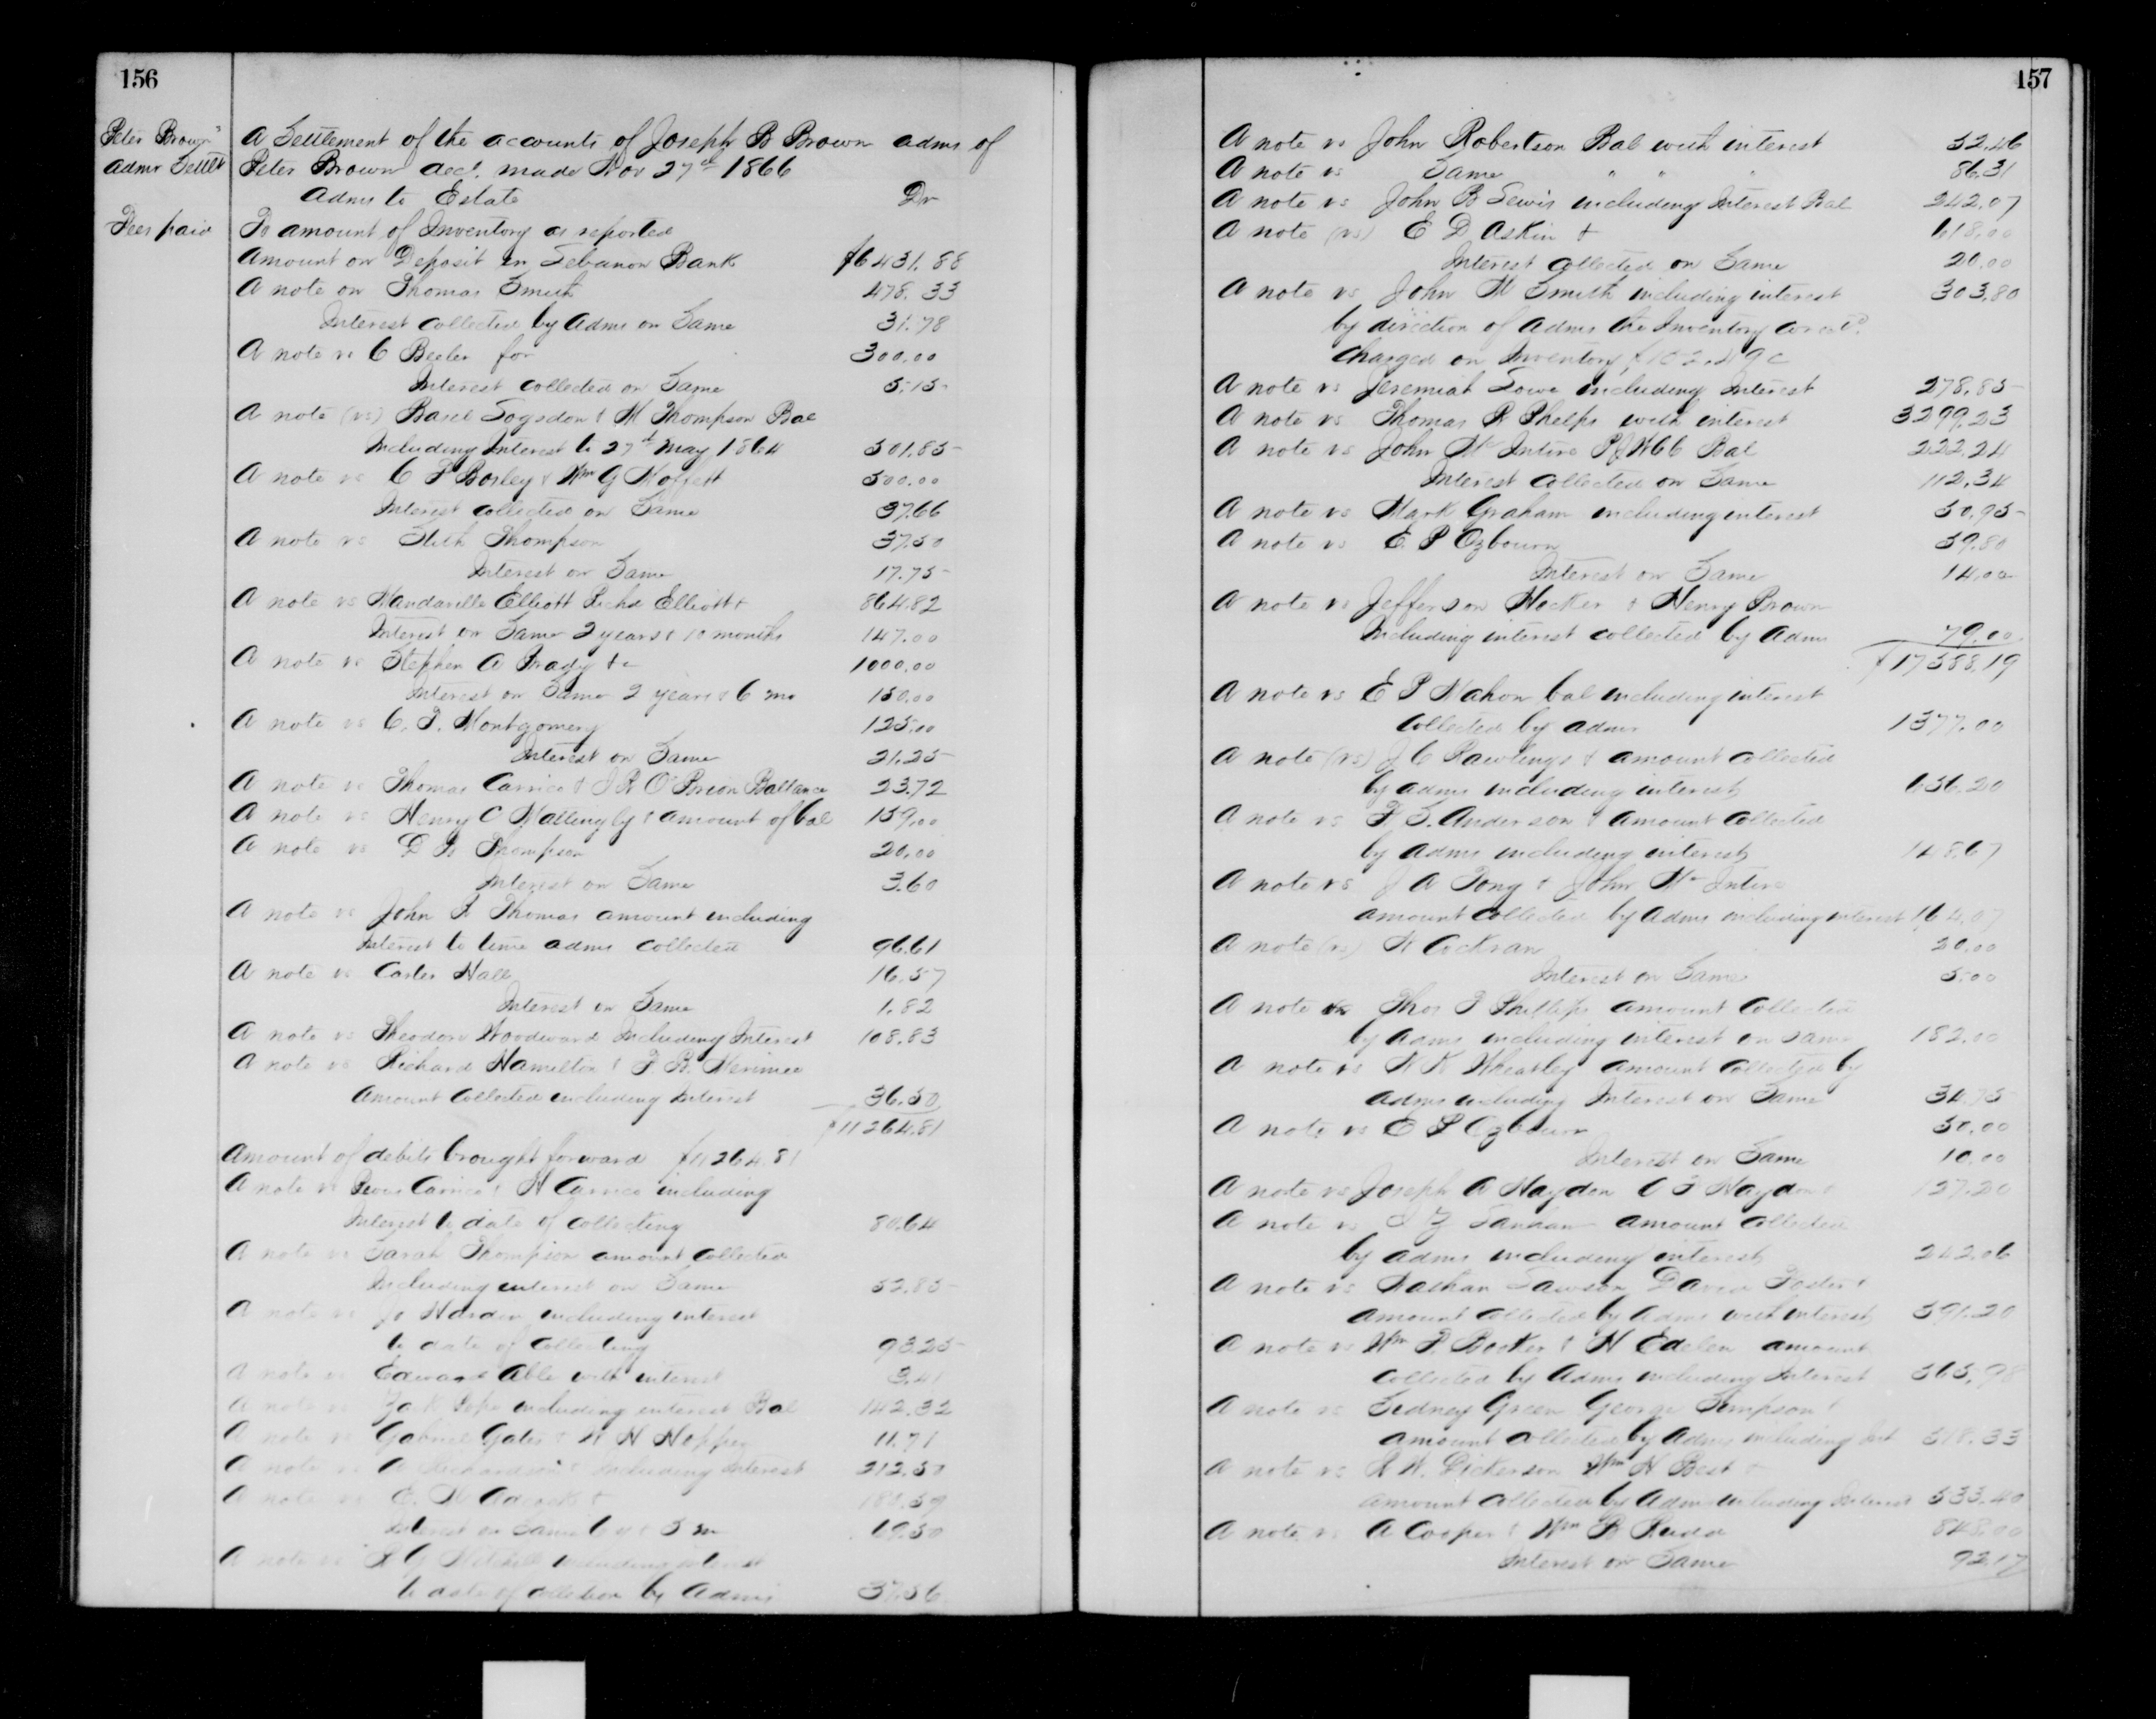 156
Peter Brown's
Admr Settlt
Fees paid
A Settlement of the accounts of Joseph B Brown admr of
Peter Brown decd. made Nov 27th 1866
Admr to Estate Dr
To amount of Inventory as reported
Amount on Deposit in Lebanon Bank $6431.88
A note on Thomas Smith 478.33
Interest collected by Admr on Same 31.78
A note vs C Beeler for 300.00
Interest collected on Same 5.15
A note (vs) Basil Logsdon & M Thompson Bal
Including Interest to 27th May 1864 501.85
A note vs C F Bosley & Wm G Moffett 500.00
Interest collected on Same 37.66
A note vs Stith Thompson 37.50
Interest on Same 17.75
A note vs Mandaville Elliott Richd Elliott & 864.82
Interest on Same 2 years & 10 months 147.00
A note vs Stephen A Grady &c 1000.00
Interest on Same 2 years & 6 mo 150.00
A note vs C. T. Montgomery 125.00
Interest on Same 21.25
A note vs Thomas Carrico & J R O'Brion Ballance 23.72
A note vs Henry C Mattingly & amount of bal 159.00
A note vs Thompson 20.00
Interest on Same 3.60
A note vs John Thomas amount including
Interest to time admr collected 96.61
A note vs Carter Hall 16.57
Interest on Same 1.82
A note vs Theodore Woodward Including Interest 108.83
A note vs Richard Hamilton & F. B. Merimee
Amount Collected including Interest 36.50
$11264.81
Amount of debits brought forward $11264.81
A note vs Carrico & H Carrico including
Interest to date of collecting 80.64
A note vs Sarah Thompson amount collected
Including interest on Same 52.85
A note vs Jo Hardin including interest
to date of Collecting 93.25
A note vs Edward Able with interest 3.41
A note vs Pope including interest Bal 142.32
A note vs Gabriel Gates & 11.71
A note vs A Richardson & Including Interest 212.50
A note vs
Interest on Same 69.50
A note vs Mitchell including interest
to date of collection by Admr 37.56
157
A note vs John Robertson Bal with interest 52.46
A note vs Same " " " 86.31
A note vs John B Lewis including Interest Bal 242.07
A note (vs) E D Askin & 618.00
Interest collected on Same 20.00
A note vs John Smith including interest 303.80
by direction of Admr the Inventory
charged on Inventory
A note vs Jeremiah Lowe including Interest 278.85
A note vs Thomas R Phelps with interest 3299.23
A note vs John McIntire Bal 222.24
Interest collected on Same 112.34
A note vs Mark Graham including interest 50.95
A note vs E. P Ozbourn 59.80
Interest on Same 14.00
A note vs Jefferson Hocker & Henry Brown
Including interest collected by Admr 79.00
$17588.19
A note vs E P Mahon bal including interest
Collected by admr 1377.00
A note (vs) J C Rawlings & amount collected
by admr including interest 636.20
A note vs Anderson & amount collected
by admr including interest 148.67
A note vs J A Tong & John McIntire
amount collected by Admr including interest 164.07
A note (vs) Cockran 20.00
Interest on Same 5.00
A note vs Thos Phillips amount Collected
by admr including interest on same 182.00
A note vs Wheatley amount collected by
admr including Interest on Same 34.75
A note vs E P Ozbourn 50.00
Interest on Same 10.00
A note vs Joseph A Haydon C T Haydon & 127.20
A note vs amount collected
by admr including interest 242.06
A note vs Nathan Lawson David Foster &
amount collected by Admr with interest 591.20
A note vs Wm P. Booker & H Edelen amount
collected by Admr including Interest 565.98
A note vs Sidney Green George Simpson &
amount collected by Admr including Int 518.33
A note vs Dickerson Wm H Best &
amount collected by Admr including Interest 533.40
A note vs A Cooper & Wm R Rudd 848.00
Interest on Same 92.17